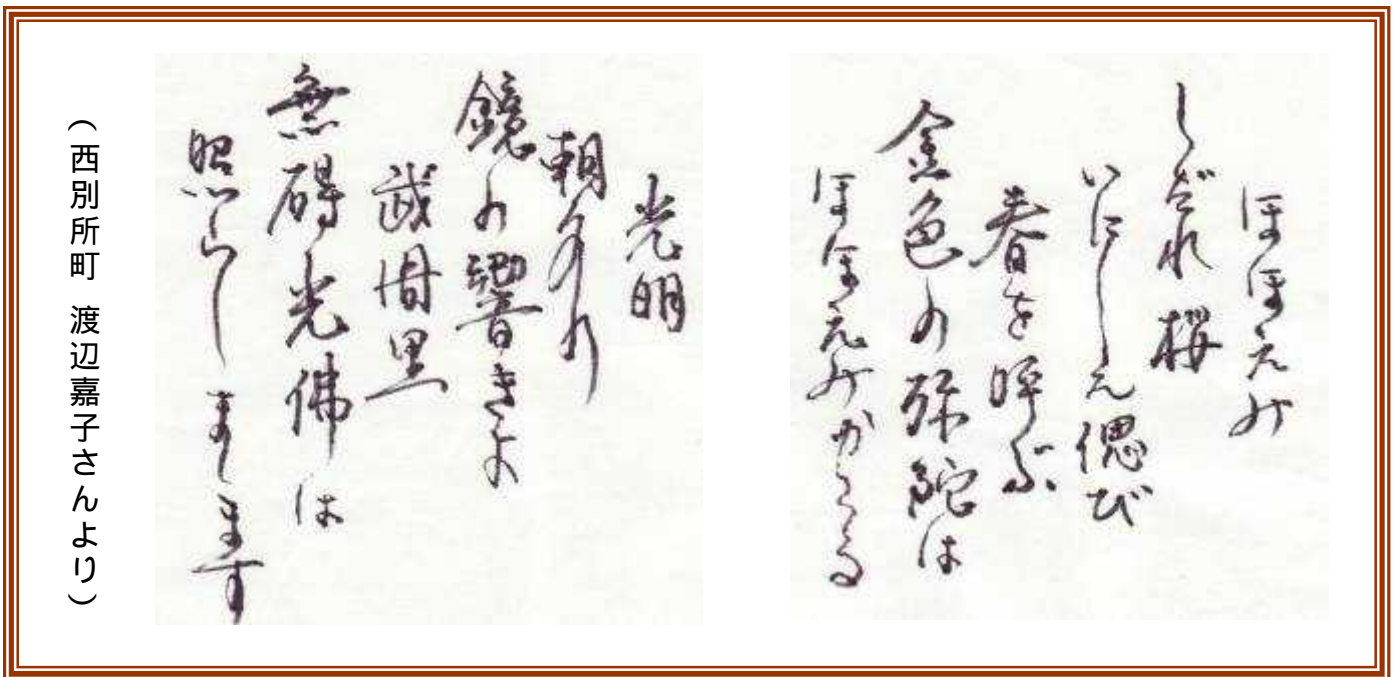 ほほえみ
しだれ桜
いにしえ偲び
春を呼ぶ
金色の弥陀は
ほほえみかくる
光明
朝夕の
鏡の響きよ
武周里
無碍光佛は
照らしまします
（西別所町 渡辺嘉子さんより）